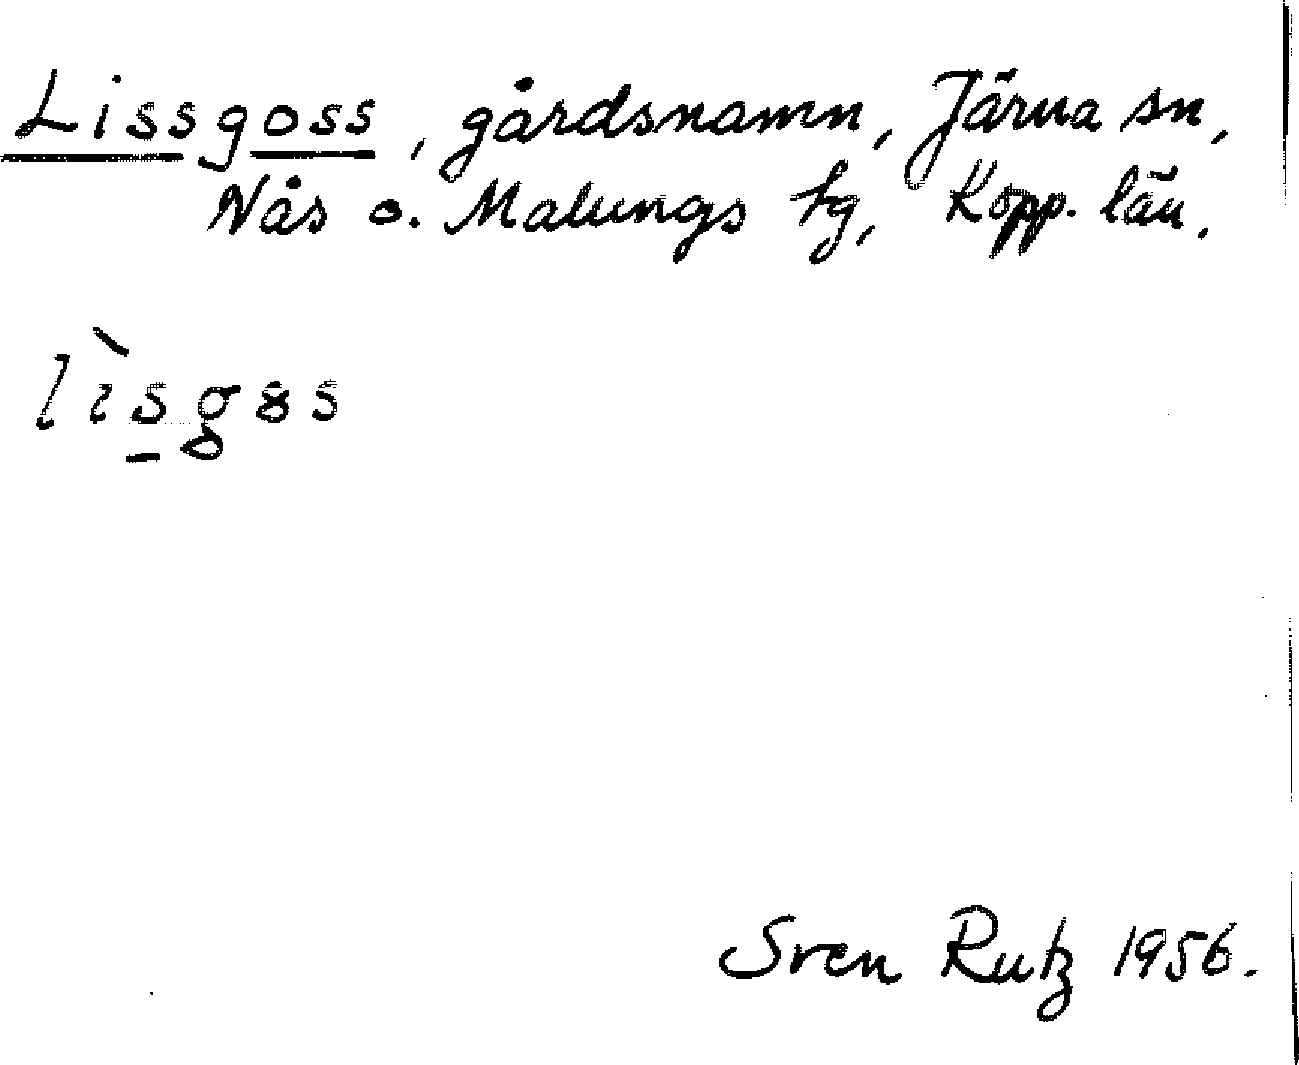 Lissgoss, gårdsnamn, Järna sn,
Nås o. Malungs tg, Kopp. län.
lìsgɷs
Sven Rutz 1956.